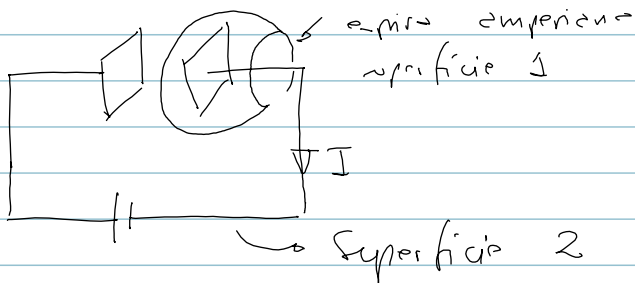 espira amperiana
superfície 1
I
Superfície 2